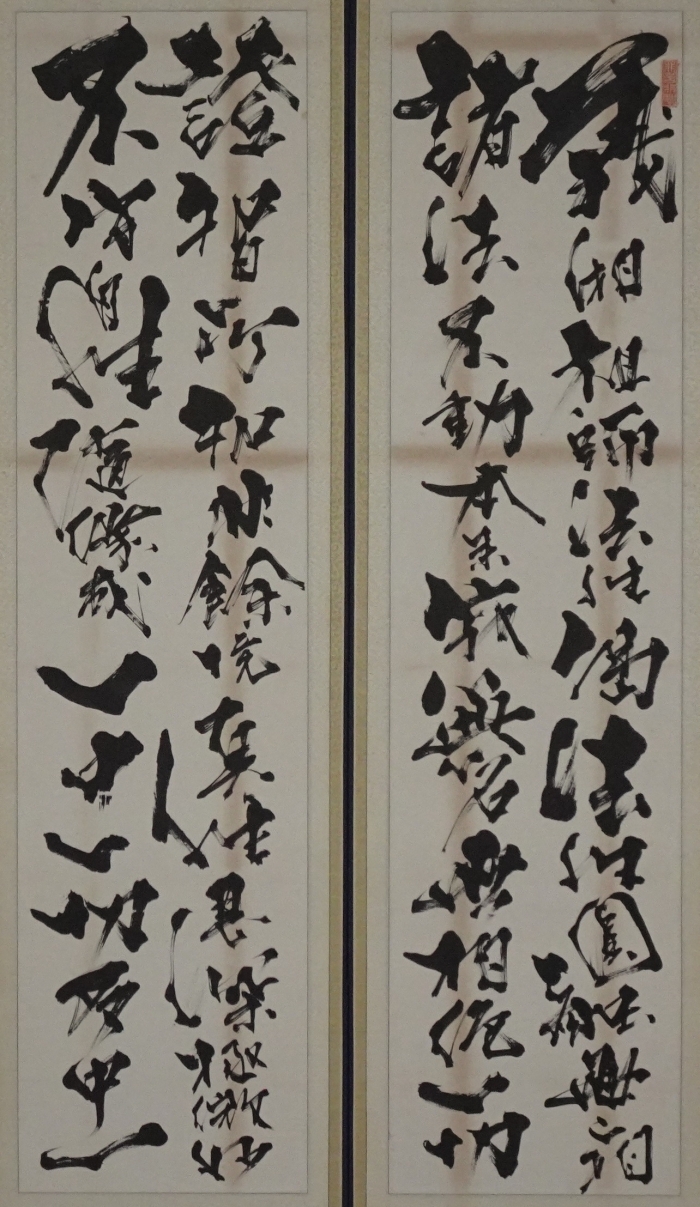 義湘祖師法性偈法性圓融無二相
諸法不動本來寂無名無相絶一切
證智所知非餘境真性甚深極微妙
不守自性隨緣成一中一切多中一